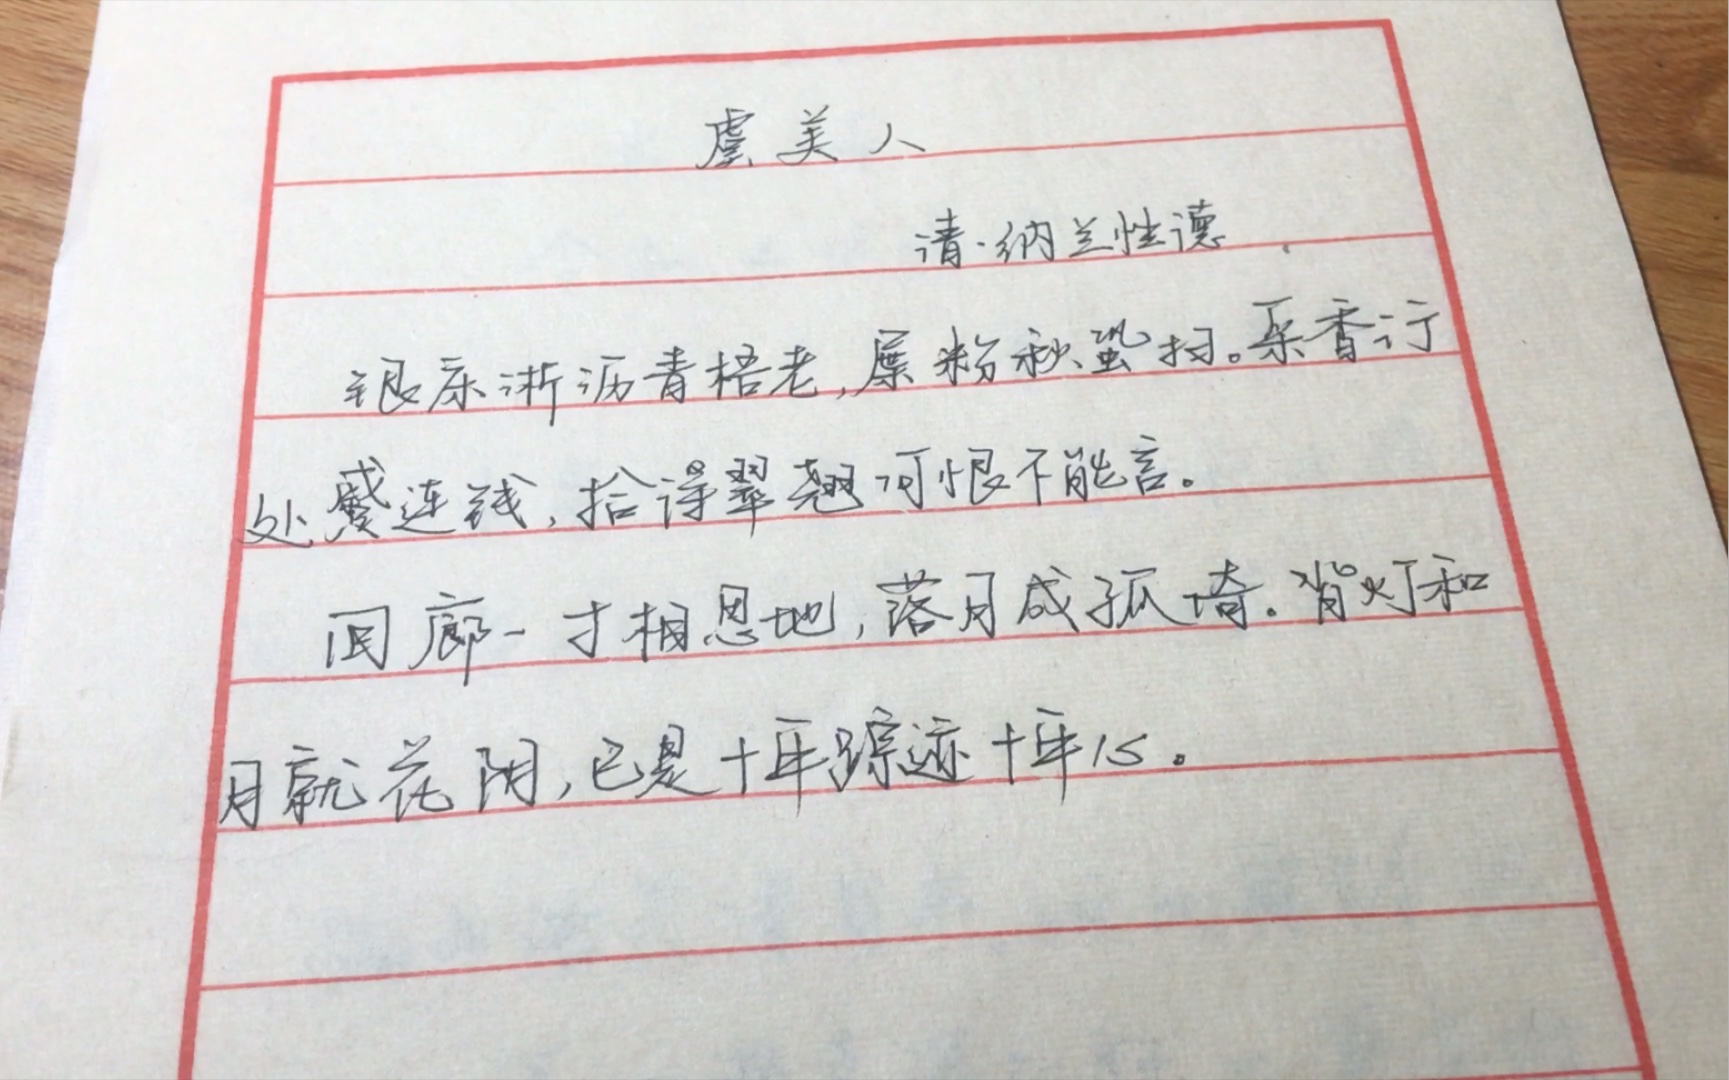 虞美人
清·纳兰性德
银床淅沥青梧老,屧粉秋蛩扫。采香行
处蹙连钱,拾得翠翘何恨不能言。
回廊一寸相思地,落月成孤倚。背灯和
月就花阴,已是十年踪迹十年心。